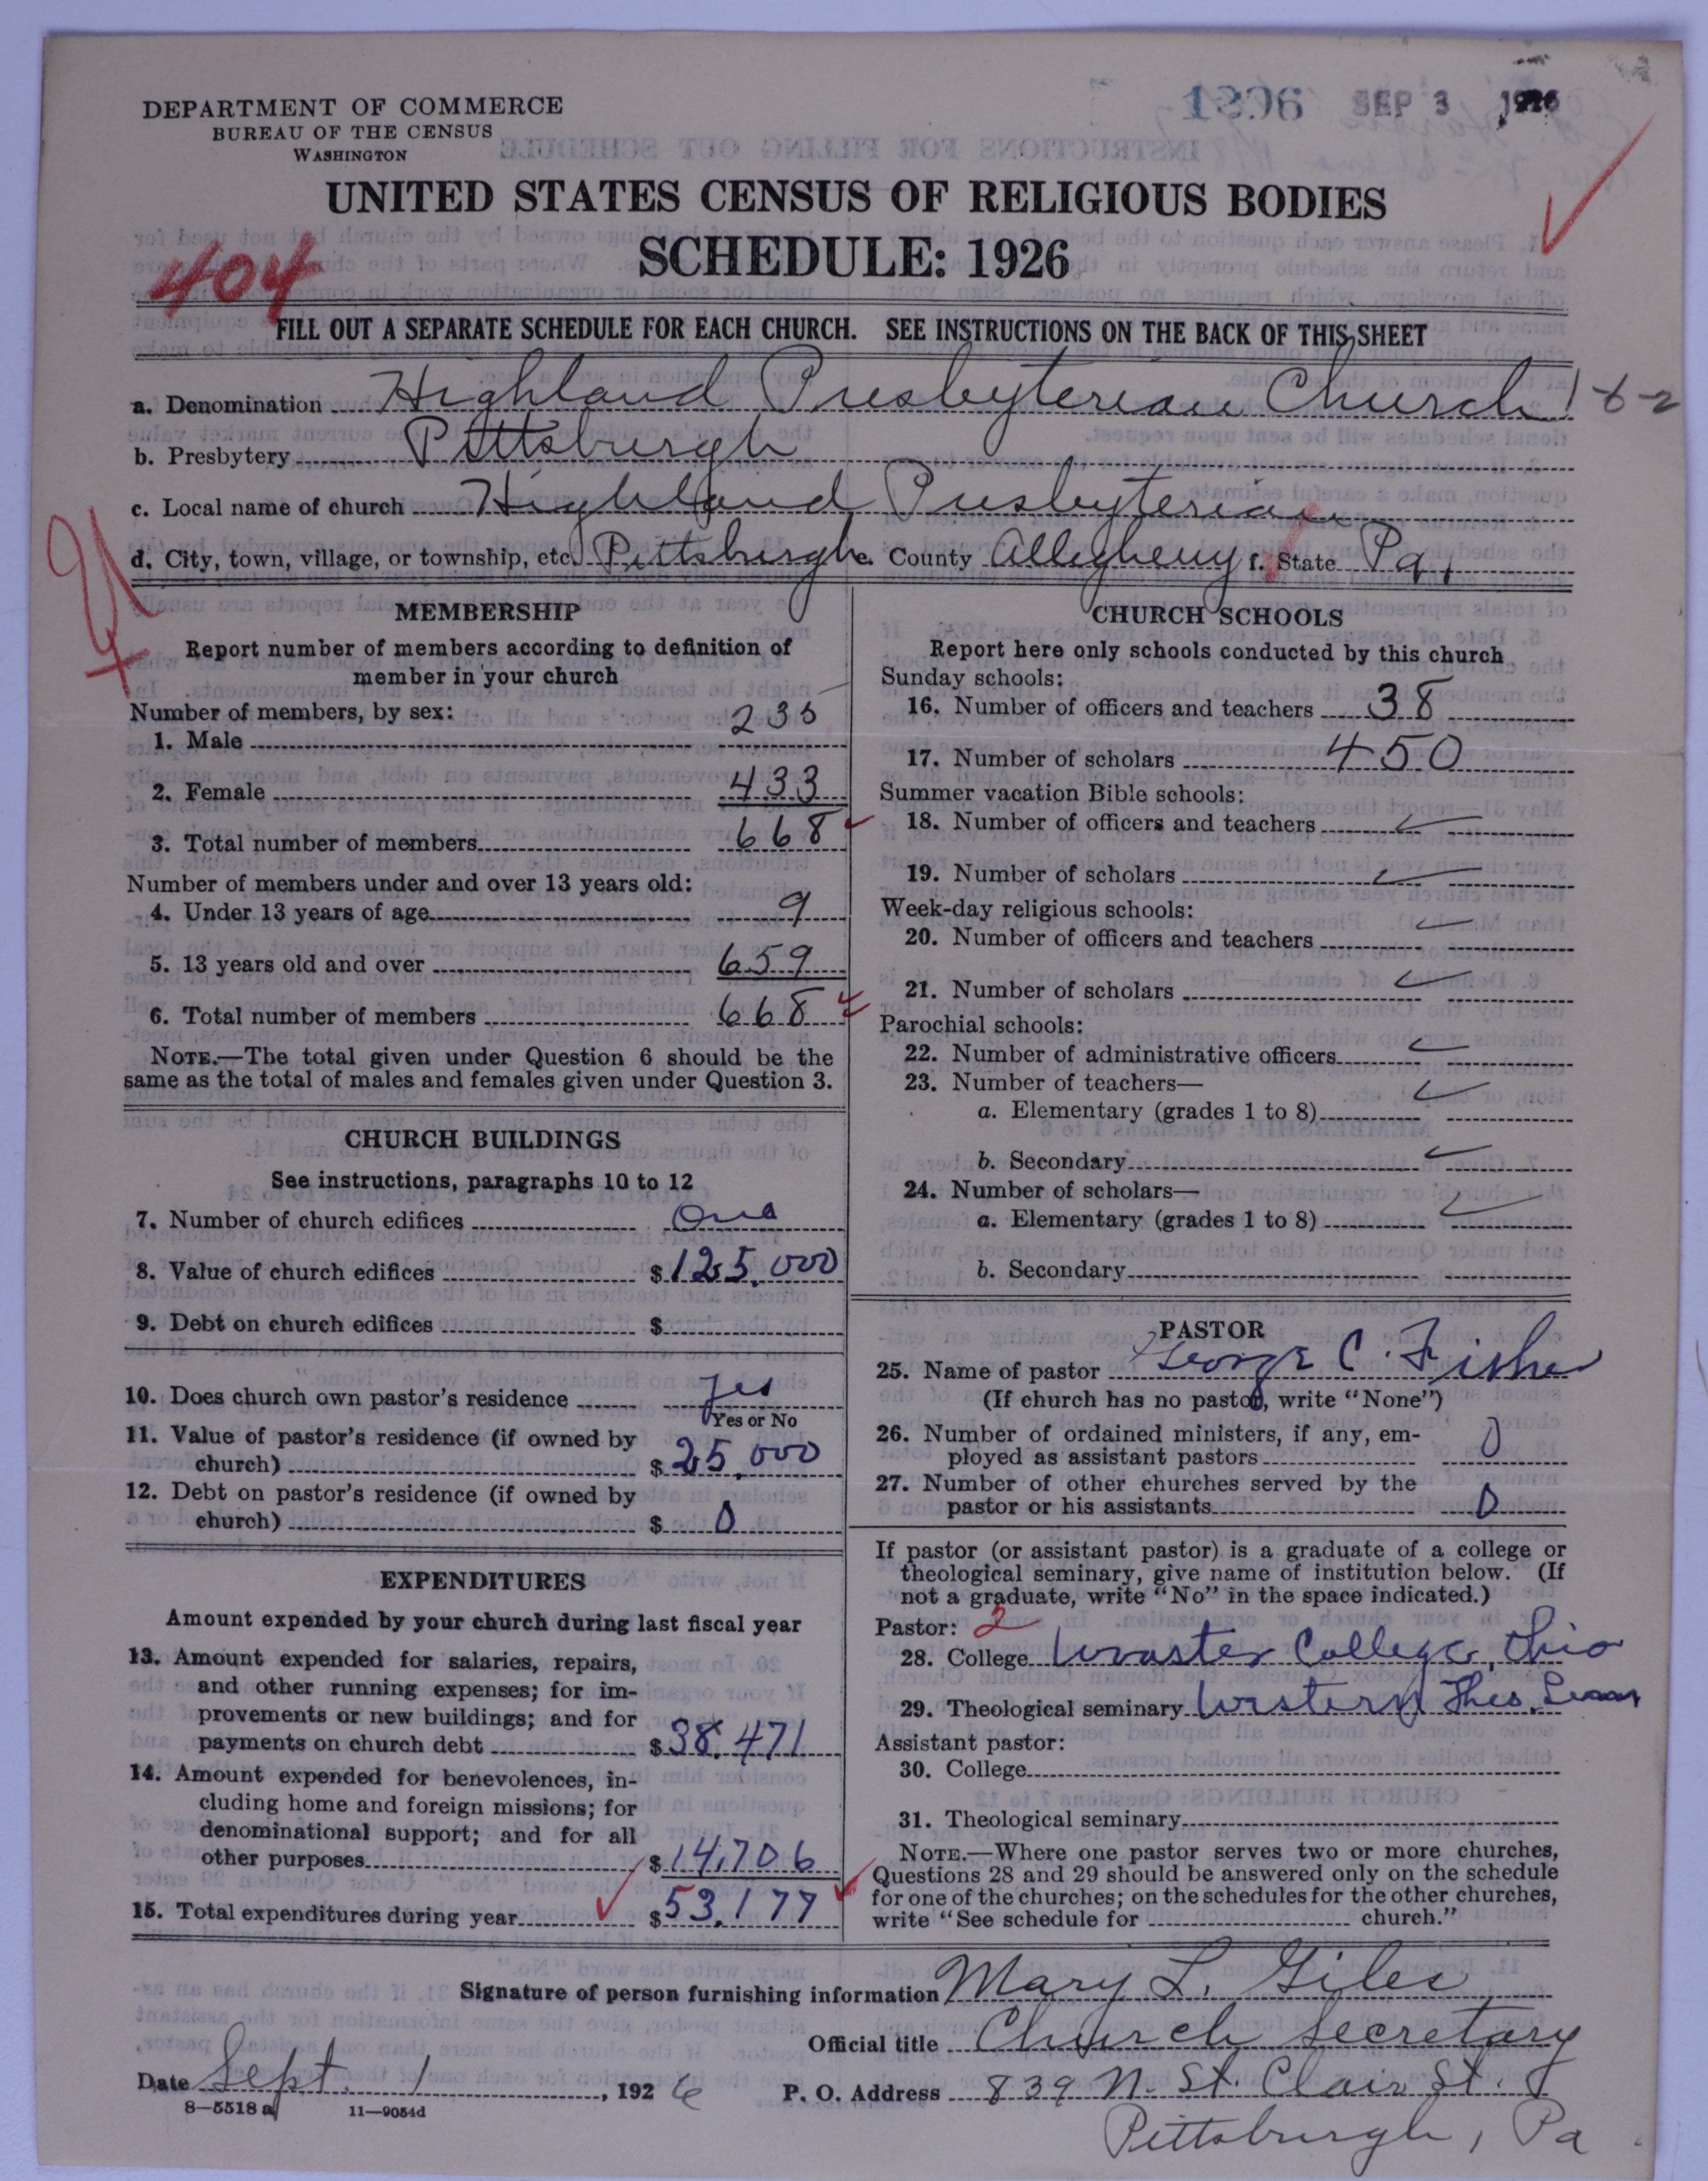 DEPARTMENT OF COMMERCE
BUREAU OF THE CENSUS
WASHINGTON
1896 SEP 3 1926
UNITED STATES CENSUS OF RELIGIOUS BODIES
SCHEDULE: 1926
404
FILL OUT A SEPARATE SCHEDULE FOR EACH CHURCH. SEE INSTRUCTIONS ON THE BACK OF THIS SHEET
a. Denomination Highland Presbyterian Church 1-6-2
b. Presbytery Pittsburgh
c. Local name of church Highland Presbyterian
d. City, town, village, or township, etc. Pittsburgh e. County Allegheny f. State Pa.
MEMBERSHIP
Report number of members according to definition of
member in your church
Number of members, by sex:
1. Male 235
2. Female 433
3. Total number of members 668
Number of members under and over 13 years old:
4. Under 13 years of age 9
5. 13 years old and over 659
6. Total number of members 668
NOTE.—The total given under Question 6 should be the
same as the total of males and females given under Question 3.
CHURCH BUILDINGS
See instructions, paragraphs 10 to 12
7. Number of church edifices One
8. Value of church edifices $125,000
9. Debt on church edifices $
10. Does church own pastor's residence Yes
Yes or No
11. Value of pastor's residence (if owned by
church) $25,000
12. Debt on pastor's residence (if owned by
church) $ 0
EXPENDITURES
Amount expended by your church during last fiscal year
13. Amount expended for salaries, repairs,
and other running expenses; for im-
provements or new buildings; and for
payments on church debt $38,471
14. Amount expended for benevolences, in-
cluding home and foreign missions; for
denominational support; and for all
other purposes $14,706
15. Total expenditures during year $53,177
CHURCH SCHOOLS
Report here only schools conducted by this church
Sunday schools:
16. Number of officers and teachers 38
17. Number of scholars 450
Summer vacation Bible schools:
18. Number of officers and teachers
19. Number of scholars
Week-day religious schools:
20. Number of officers and teachers
21. Number of scholars
Parochial schools:
22. Number of administrative officers
23. Number of teachers—
a. Elementary (grades 1 to 8)
b. Secondary
24. Number of scholars—
a. Elementary (grades 1 to 8)
b. Secondary
PASTOR
25. Name of pastor George C. Fisher
(If church has no pastor, write "None")
26. Number of ordained ministers, if any, em-
ployed as assistant pastors 0
27. Number of other churches served by the
pastor or his assistants 0
If pastor (or assistant pastor) is a graduate of a college or
theological seminary, give name of institution below. (If
not a graduate, write "No" in the space indicated.)
Pastor: 2
28. College Wooster College, Ohio
29. Theological seminary Western Theo. Sem
Assistant pastor:
30. College
31. Theological seminary
NOTE.—Where one pastor serves two or more churches,
Questions 28 and 29 should be answered only on the schedule
for one of the churches; on the schedules for the other churches,
write "See schedule for church."
Signature of person furnishing information Mary L. Giles
Official title Church Secretary
Date Sept. 1, 1926 P. O. Address 839 N. St. Clair St.
8—5518 a 11—9054d
Pittsburgh, Pa